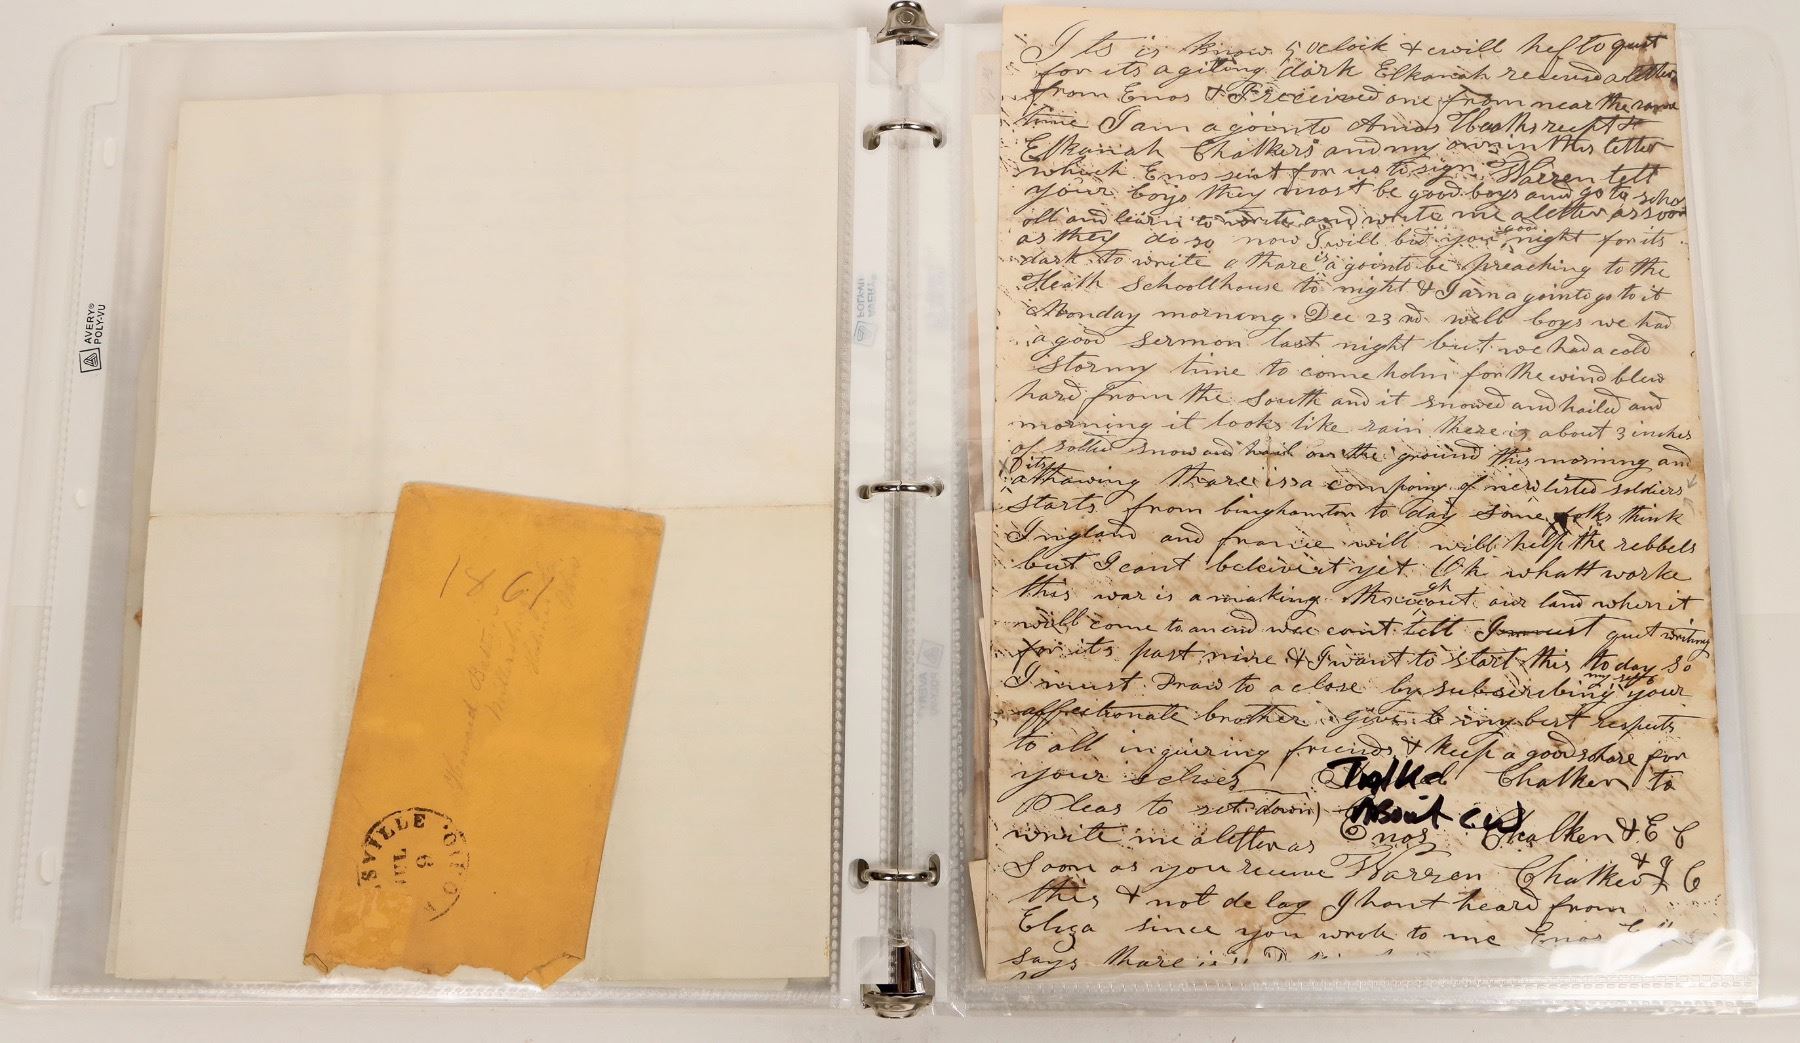 AVERY®
POLY-VU
1861
SVILLE
JUL
9
OHIO
Its is know 5 oclock & will hef to quit
for its a giting dark Elkanah received a letter
from Enos & I received one from near the same
time I am a goin to Amos Heaths recpt &
Elkanah Chalkers and my own in this letter
which Enos sent for us to sign Warren tell
your boys they must be good boys and go to scho
oll and learn to write and write me a letter as soon
as they do so now I will bid you good night for its
dark to write a thare is a goin to be preaching to the
Heath Schoollhouse to night & I am a goin to go to it
Monday morning Dec 23rd well boys we had
a good sermon last night but we had a cold
stormy time to come holm for the wind blew
hard from the South and it snowed and hailed and
morning it looks like rain there is about 3 inches
of snow and hail on the ground this morning and
its
a thawing thare is a compony of new listed soldiers
starts from binghamton to day some folks think
Ingland and france will will help the rebbels
but I cant beleive it yet Oh whatt worke
this war is a making through out our land when it
will come to an end we cant tell I must quit writing
for its past nine & I want to start this to day so
I must Draw to a close by subscribing my self your
affectionate brother give to my best respects
to all inquiring friends & keep a good share for
your selves Chalker to
Talked
About CW
Pleas to set down Enos Chalker & E C
write me a letter as Warren Chalker & J C
soon as you receive
this & not delay I hant heard from
Eliza since you wrote to me Enos
says thare is